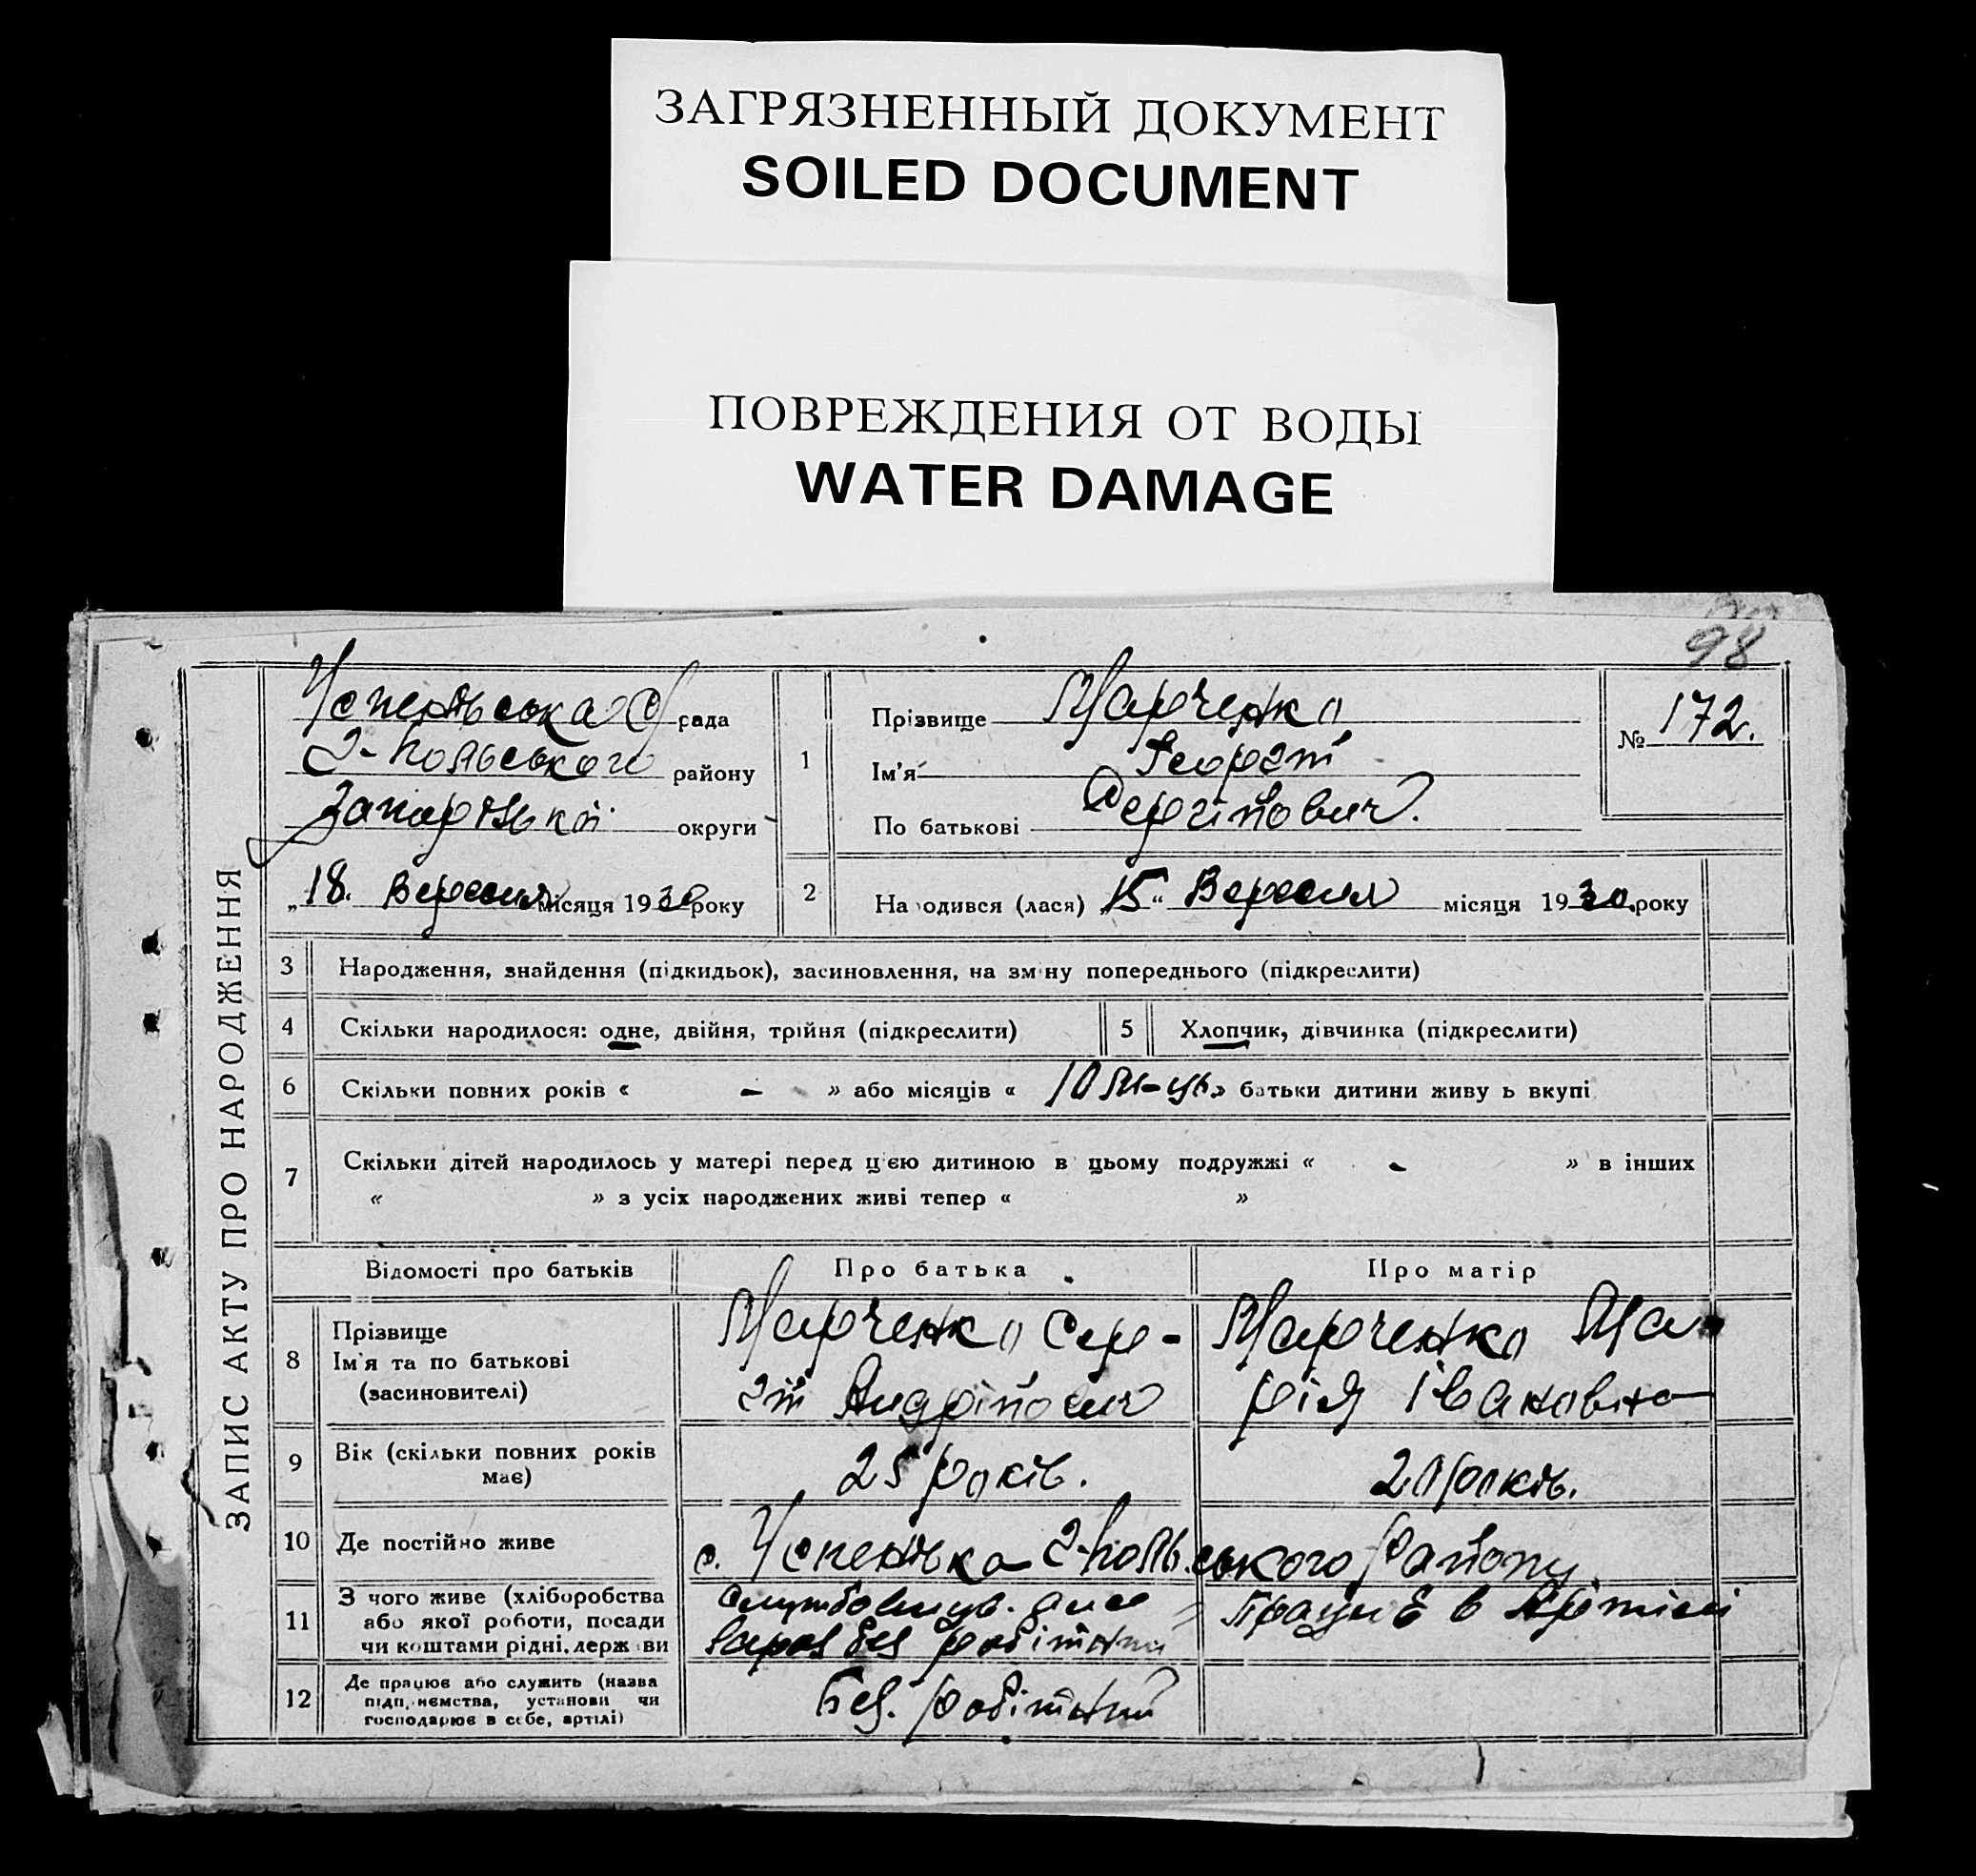 ЗАГРЯЗНЕННЫЙ ДОКУМЕНТ
SOILED DOCUMENT
ПОВРЕЖДЕНИЯ ОТ ВОДЫ
WATER DAMAGE
98
ЗАПИС АКТУ ПРО НАРОДЖЕННЯ
Успенівська С/рада
Г-Польського району
Запоріжської округи
„18. Вересня місяця 1930 року
1
Прізвище Марченко
Ім'я Георгій
По батькові Сергійович.
№ 172.
2
Народився (лася) „15“ Вересня місяця 1930. року
3 Народження, знайдення (підкидьок), засиновлення, на зміну попереднього (підкреслити)
4 Скільки народилося: одне, двійня, трійня (підкреслити)
5 Хлопчик, дівчинка (підкреслити)
6 Скільки повних років « - » або місяців « 10 м-ців » батьки дитини живуть вкупі
7 Скільки дітей народилось у матері перед цією дитиною в цьому подружжі « - » в інших
« » з усіх народжених живі тепер « »
Відомості про батьків
Про батька
Про матір
8
Прізвище
Ім'я та по батькові
(засиновителі)
Марченко Сер-
гій Андрійович
Марченко Ма-
рія Івановна
9
Вік (скільки повних років
має)
25 років.
20 років.
10 Де постійно живе
с. Успенівка Г-Польського району
11
З чого живе (хліборобства
або якої роботи, посади
чи коштами рідні, держави
Службовець.
зараз без робітний
Працює в Артілі
12
Де працює або служить (назва
підприємства, установи чи
господарює в себе, артілі)
Без. робітний